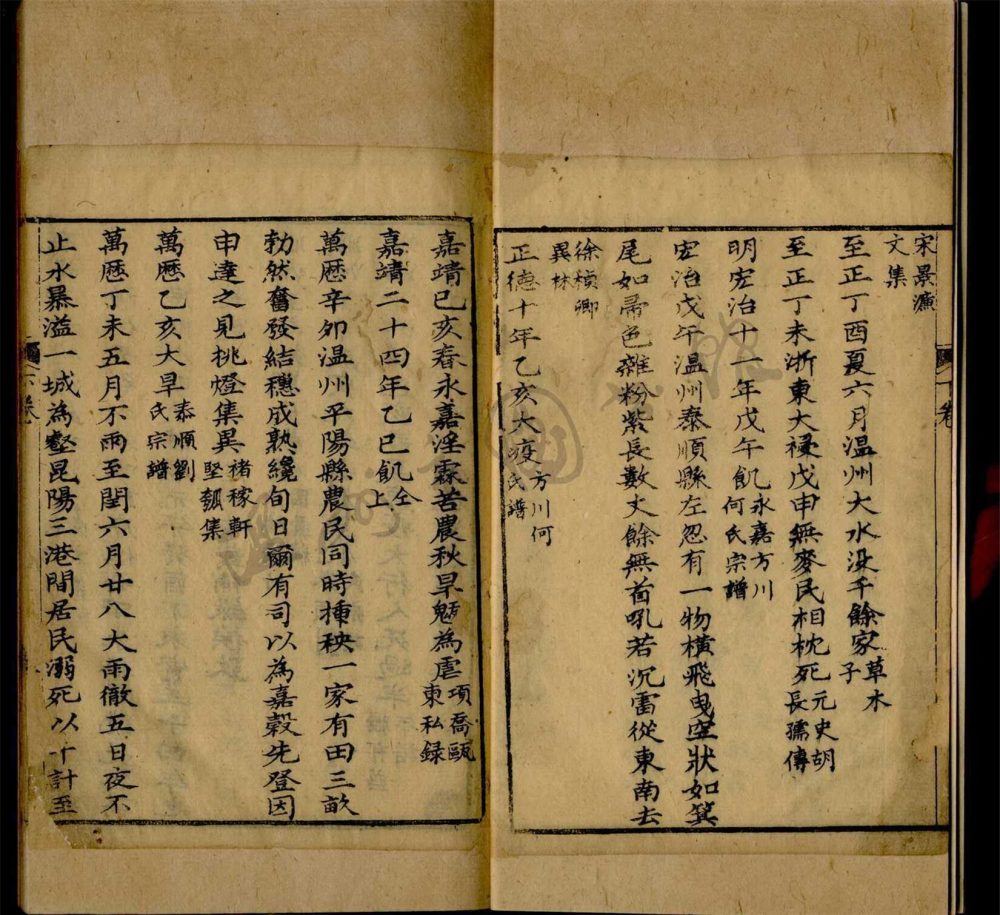 宋景濂
文集
至正丁酉夏六月温州大水没千餘家草木子
至正丁未浙東大祲戊申無麥民相枕死元史胡長孺傳
明宏治十一年戊午飢永嘉方川何氏宗譜
宏治戊午温州泰順縣左忽有一物橫飛曳空狀如箕
尾如帚色雜粉紫長數丈餘無首吼若沉雷從東南去
徐禎卿
異林
正德十年乙亥大疫方川何氏譜
嘉靖己亥春永嘉淫霖苦農秋旱魃為虐項喬甌東私録
嘉靖二十四年乙巳飢仝上
萬厯辛卯温州平陽縣農民同時揷秧一家有田三畝
勃然奮發結穗成熟纔旬日爾有司以為嘉穀先登因
申達之見挑燈集異褚稼軒堅瓠集
萬厯乙亥大旱泰順劉氏宗譜
萬厯丁未五月不雨至閏六月廿八大雨徹五日夜不
止水暴溢一城為壑昆陽三港間居民溺死以千計至
卷